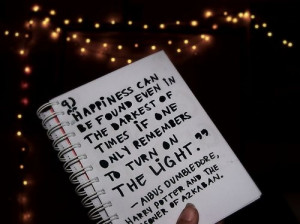 “
HAPPINESS CAN
BE FOUND EVEN IN
THE DARKEST OF
TIMES IF ONE
ONLY REMEMBERS
TO TURN ON
THE LIGHT.”
—AlBUS DUMBLEDORE,
HARRY POTTER AND THE
PRISONER OF AZKABAN.